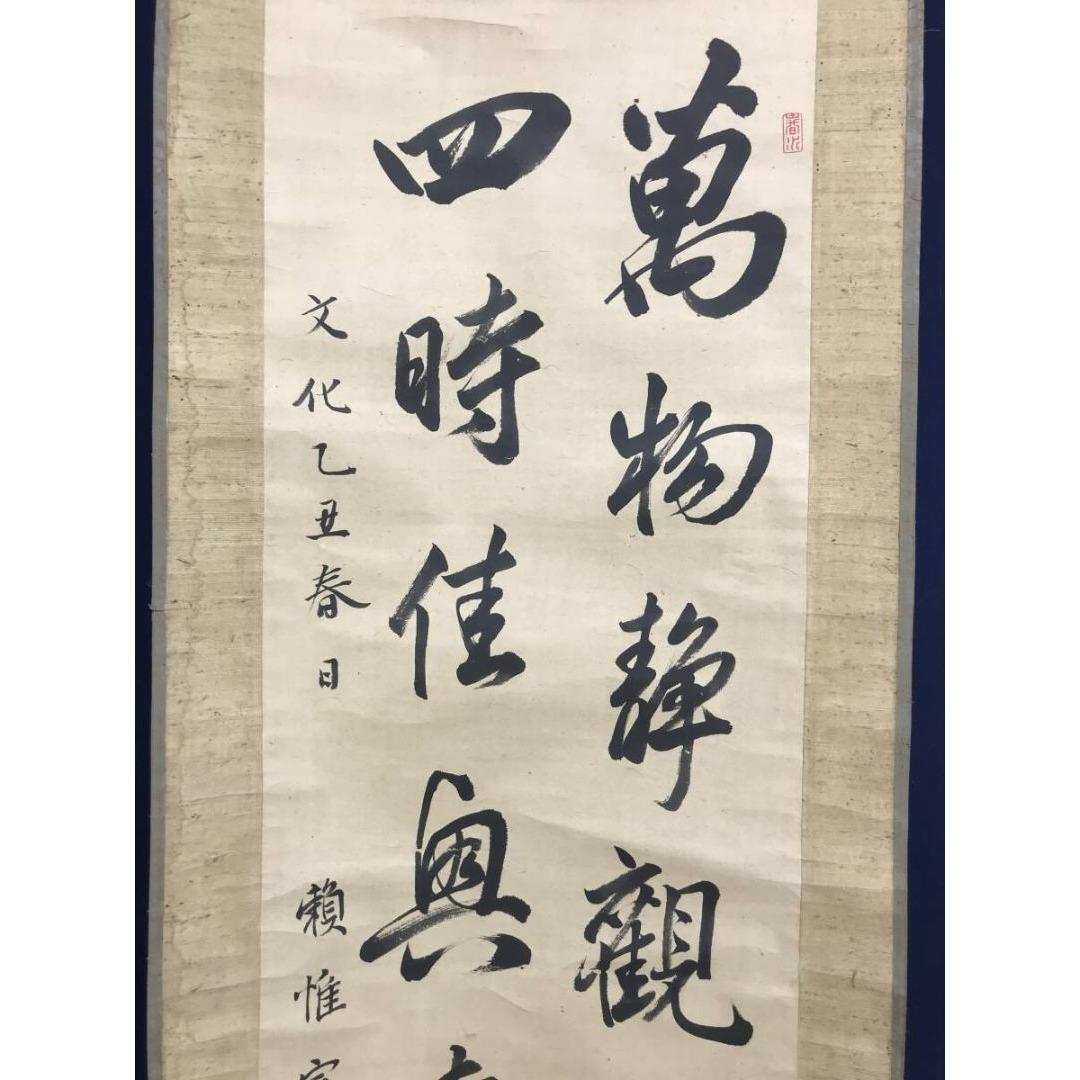 萬物靜觀
四時佳興
文化乙丑春日
賴惟